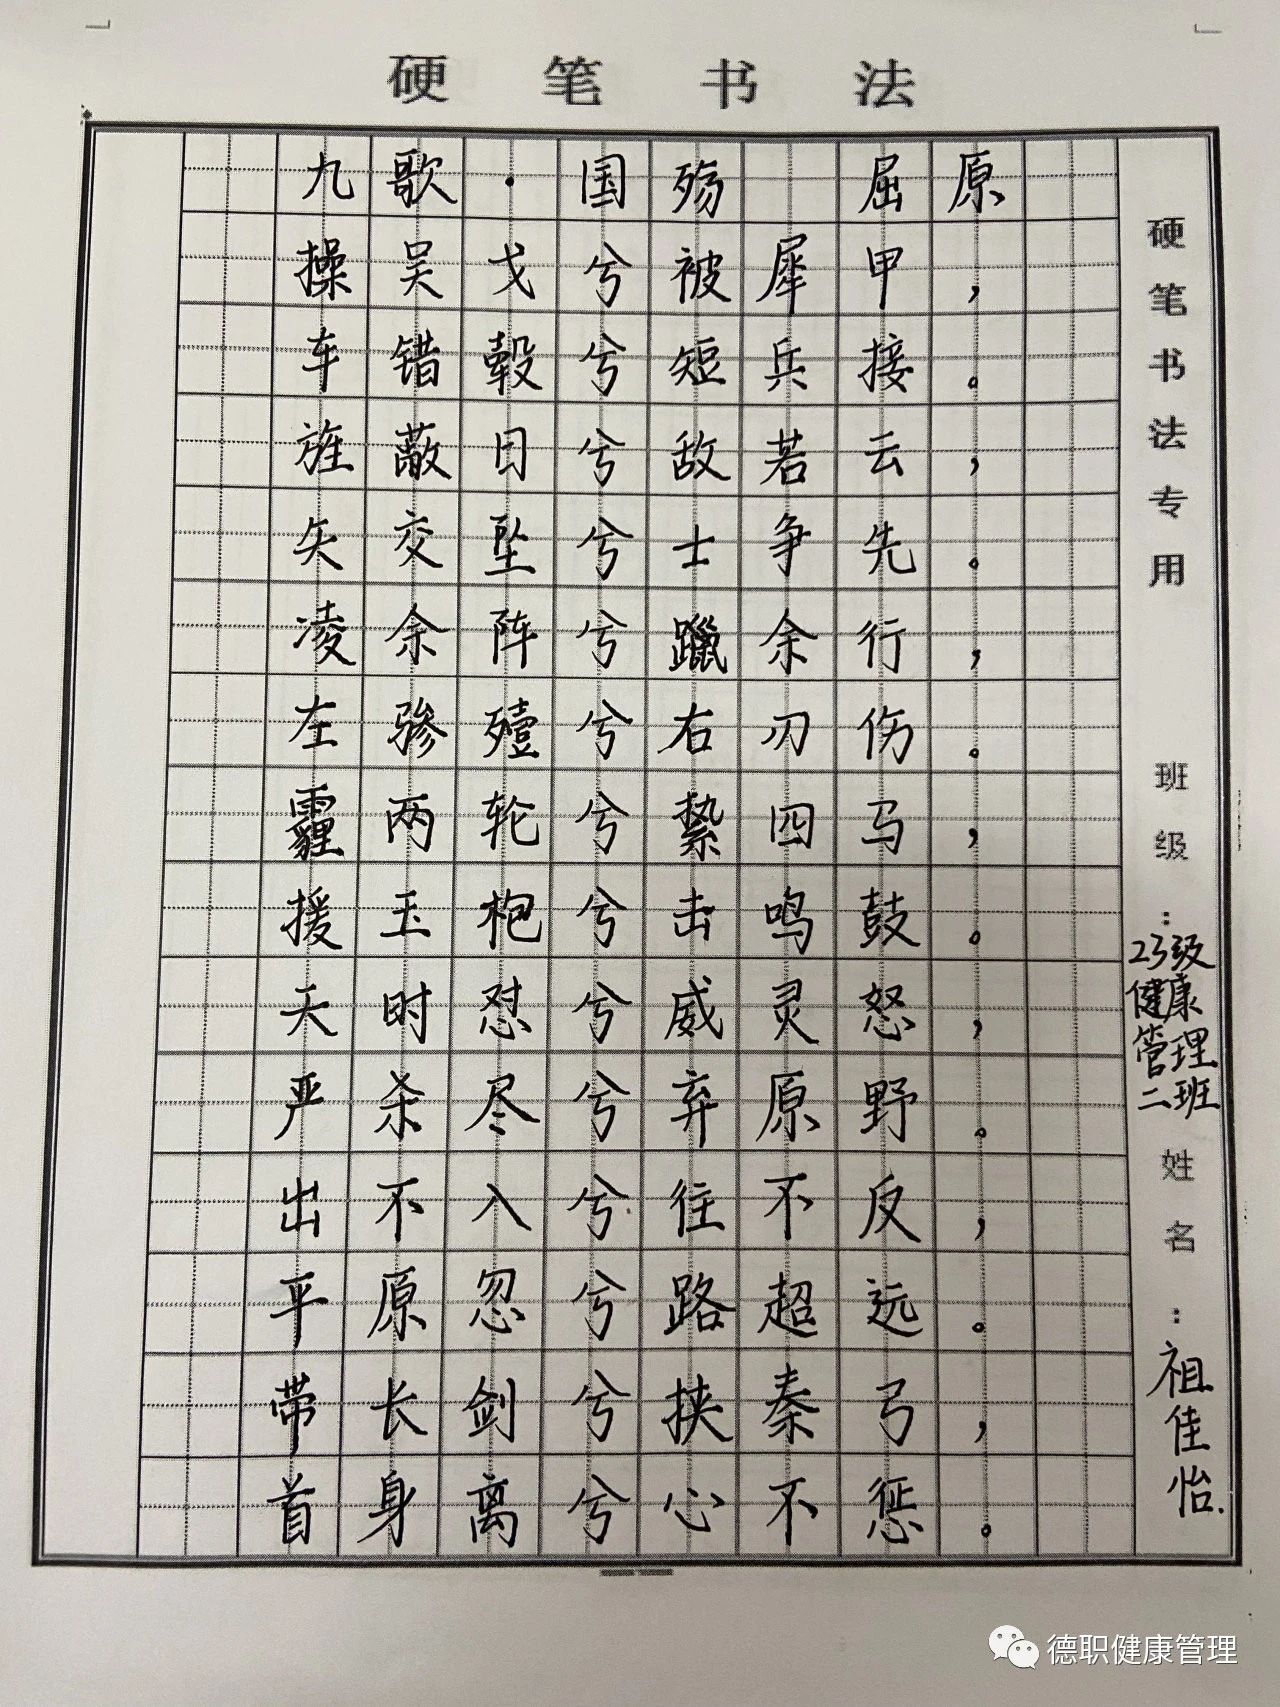 硬笔书法
九歌·国殇 屈原
操吴戈兮被犀甲，
车错毂兮短兵接。
旌蔽日兮敌若云，
矢交坠兮士争先。
凌余阵兮躐余行，
左骖殪兮右刃伤。
霾两轮兮絷四马，
援玉枹兮击鸣鼓。
天时怼兮威灵怒，
严杀尽兮弃原野。
出不入兮往不反，
平原忽兮路超远。
带长剑兮挟秦弓，
首身离兮心不惩。
硬笔书法专用
班级：23级健康管理二班
姓名：祖佳怡.
德职健康管理